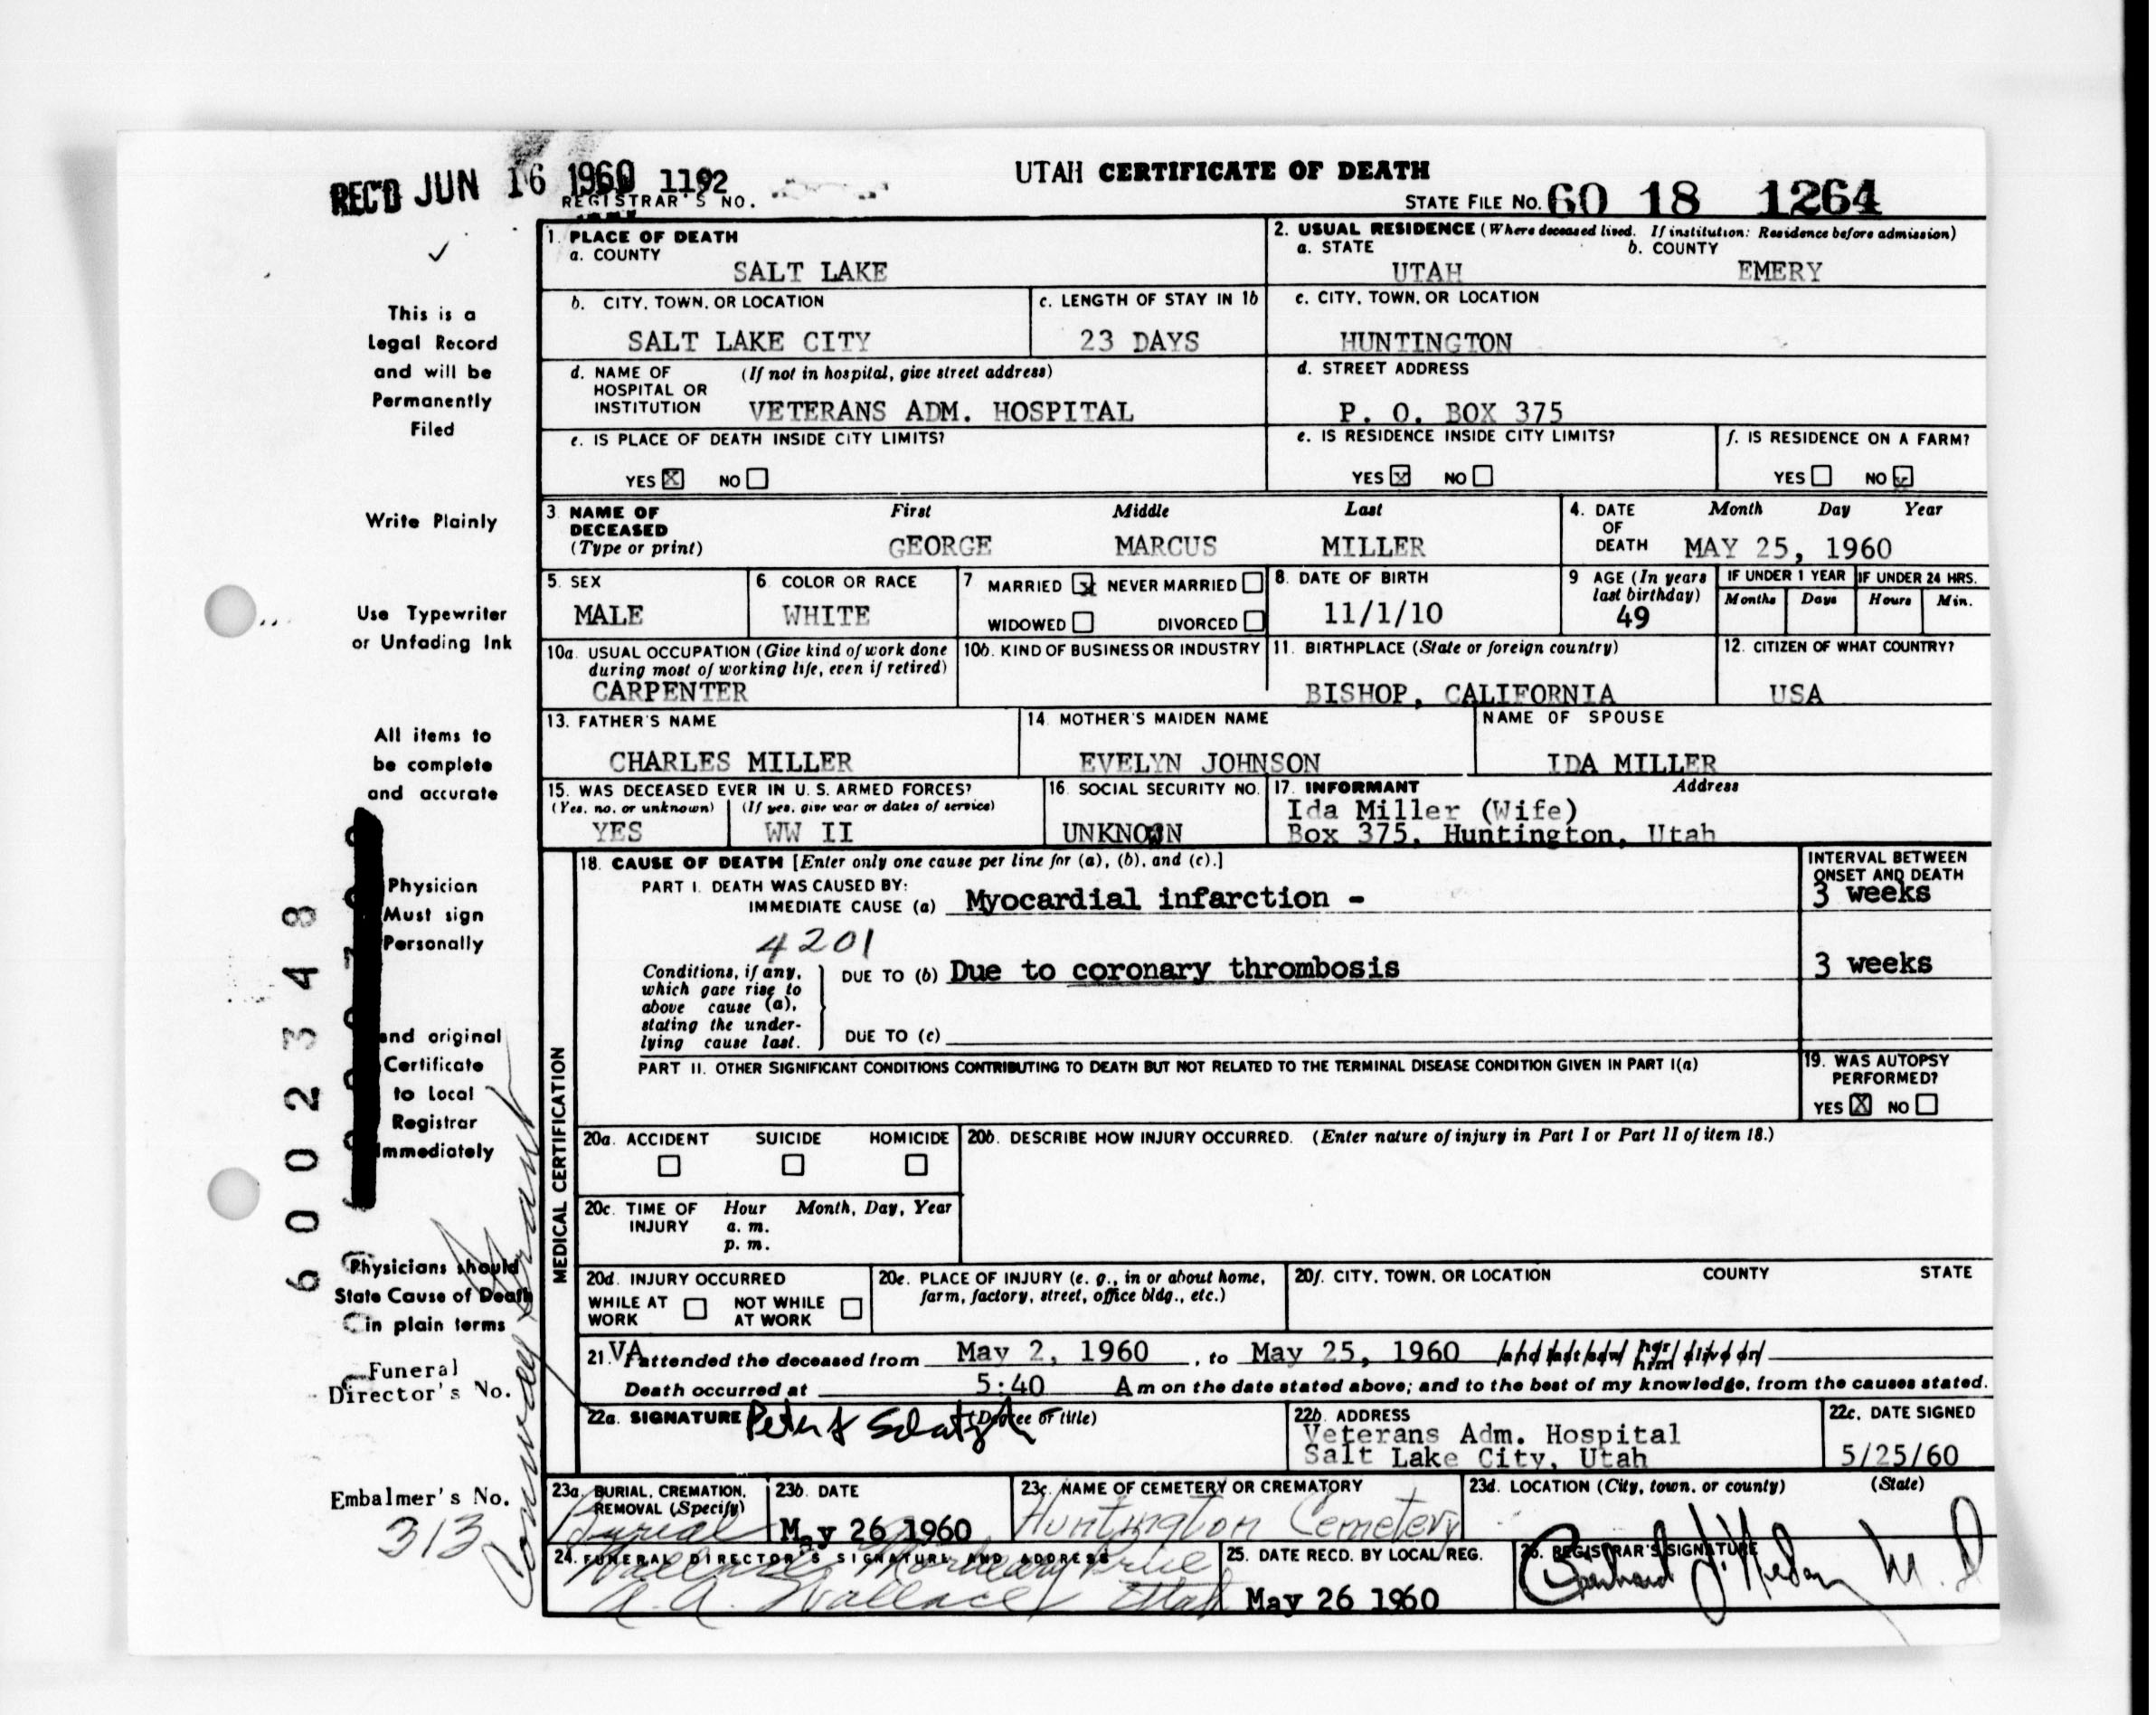 REC'D JUN 16 1960 1192
REGISTRAR'S NO.
UTAH CERTIFICATE OF DEATH
STATE FILE NO. 60 18 1264
This is a
Legal Record
and will be
Permanently
Filed
Write Plainly
Use Typewriter
or Unfading Ink
All items to
be complete
and accurate
Physician
Must sign
Personally
end original
Certificate
to Local
Registrar
Immediately
Physicians should
State Cause of Death
in plain terms
Funeral
Director's No.
Embalmer's No.
313
6002348
1. PLACE OF DEATH
a. COUNTY
SALT LAKE
2. USUAL RESIDENCE (Where deceased lived. If institution: Residence before admission)
a. STATE b. COUNTY
UTAH EMERY
b. CITY, TOWN, OR LOCATION
SALT LAKE CITY
c. LENGTH OF STAY IN 1b
23 DAYS
c. CITY, TOWN, OR LOCATION
HUNTINGTON
d. NAME OF (If not in hospital, give street address)
HOSPITAL OR
INSTITUTION VETERANS ADM. HOSPITAL
d. STREET ADDRESS
P. O. BOX 375
e. IS PLACE OF DEATH INSIDE CITY LIMITS?
YES X NO
e. IS RESIDENCE INSIDE CITY LIMITS?
YES X NO
f. IS RESIDENCE ON A FARM?
YES NO X
3. NAME OF First Middle Last
DECEASED
(Type or print) GEORGE MARCUS MILLER
4. DATE Month Day Year
OF
DEATH MAY 25, 1960
5. SEX
MALE
6. COLOR OR RACE
WHITE
7 MARRIED X NEVER MARRIED
WIDOWED DIVORCED
8. DATE OF BIRTH
11/1/10
9 AGE (In years
last birthday)
49
IF UNDER 1 YEAR IF UNDER 24 HRS.
Months Days Hours Min.
10a. USUAL OCCUPATION (Give kind of work done
during most of working life, even if retired)
CARPENTER
10b. KIND OF BUSINESS OR INDUSTRY
11. BIRTHPLACE (State or foreign country)
BISHOP, CALIFORNIA
12. CITIZEN OF WHAT COUNTRY?
USA
13. FATHER'S NAME
CHARLES MILLER
14. MOTHER'S MAIDEN NAME
EVELYN JOHNSON
NAME OF SPOUSE
IDA MILLER
15. WAS DECEASED EVER IN U. S. ARMED FORCES?
(Yes, no, or unknown) (If yes, give war or dates of service)
YES WW II
16. SOCIAL SECURITY NO.
UNKNOWN
17. INFORMANT Address
Ida Miller (Wife)
Box 375, Huntington, Utah
MEDICAL CERTIFICATION
18. CAUSE OF DEATH [Enter only one cause per line for (a), (b), and (c).]
PART I. DEATH WAS CAUSED BY:
IMMEDIATE CAUSE (a) Myocardial infarction -
4201
Conditions, if any,
which gave rise to
above cause (a),
stating the under-
lying cause last.
DUE TO (b) Due to coronary thrombosis
DUE TO (c)
INTERVAL BETWEEN
ONSET AND DEATH
3 weeks
3 weeks
PART II. OTHER SIGNIFICANT CONDITIONS CONTRIBUTING TO DEATH BUT NOT RELATED TO THE TERMINAL DISEASE CONDITION GIVEN IN PART I(a)
19. WAS AUTOPSY
PERFORMED?
YES X NO
20a. ACCIDENT SUICIDE HOMICIDE
20b. DESCRIBE HOW INJURY OCCURRED. (Enter nature of injury in Part I or Part II of item 18.)
20c. TIME OF Hour Month, Day, Year
INJURY a. m.
p. m.
20d. INJURY OCCURRED
WHILE AT NOT WHILE
WORK AT WORK
20e. PLACE OF INJURY (e. g., in or about home,
farm, factory, street, office bldg., etc.)
20f. CITY, TOWN, OR LOCATION COUNTY STATE
21. VA attended the deceased from May 2, 1960, to May 25, 1960 and last saw her/him alive on
Death occurred at 5:40 A m on the date stated above; and to the best of my knowledge, from the causes stated.
22a. SIGNATURE (Degree or title)
Peter
22b. ADDRESS
Veterans Adm. Hospital
Salt Lake City, Utah
22c. DATE SIGNED
5/25/60
23a. BURIAL, CREMATION,
REMOVAL (Specify)
Burial
23b. DATE
May 26 1960
23c. NAME OF CEMETERY OR CREMATORY
Huntington Cemetery
23d. LOCATION (City, town, or county) (State)
24. FUNERAL DIRECTOR'S SIGNATURE AND ADDRESS
Wallace Mortuary Price
A. A. Wallace Utah
25. DATE RECD. BY LOCAL REG.
May 26 1960
26. REGISTRAR'S SIGNATURE
M. D